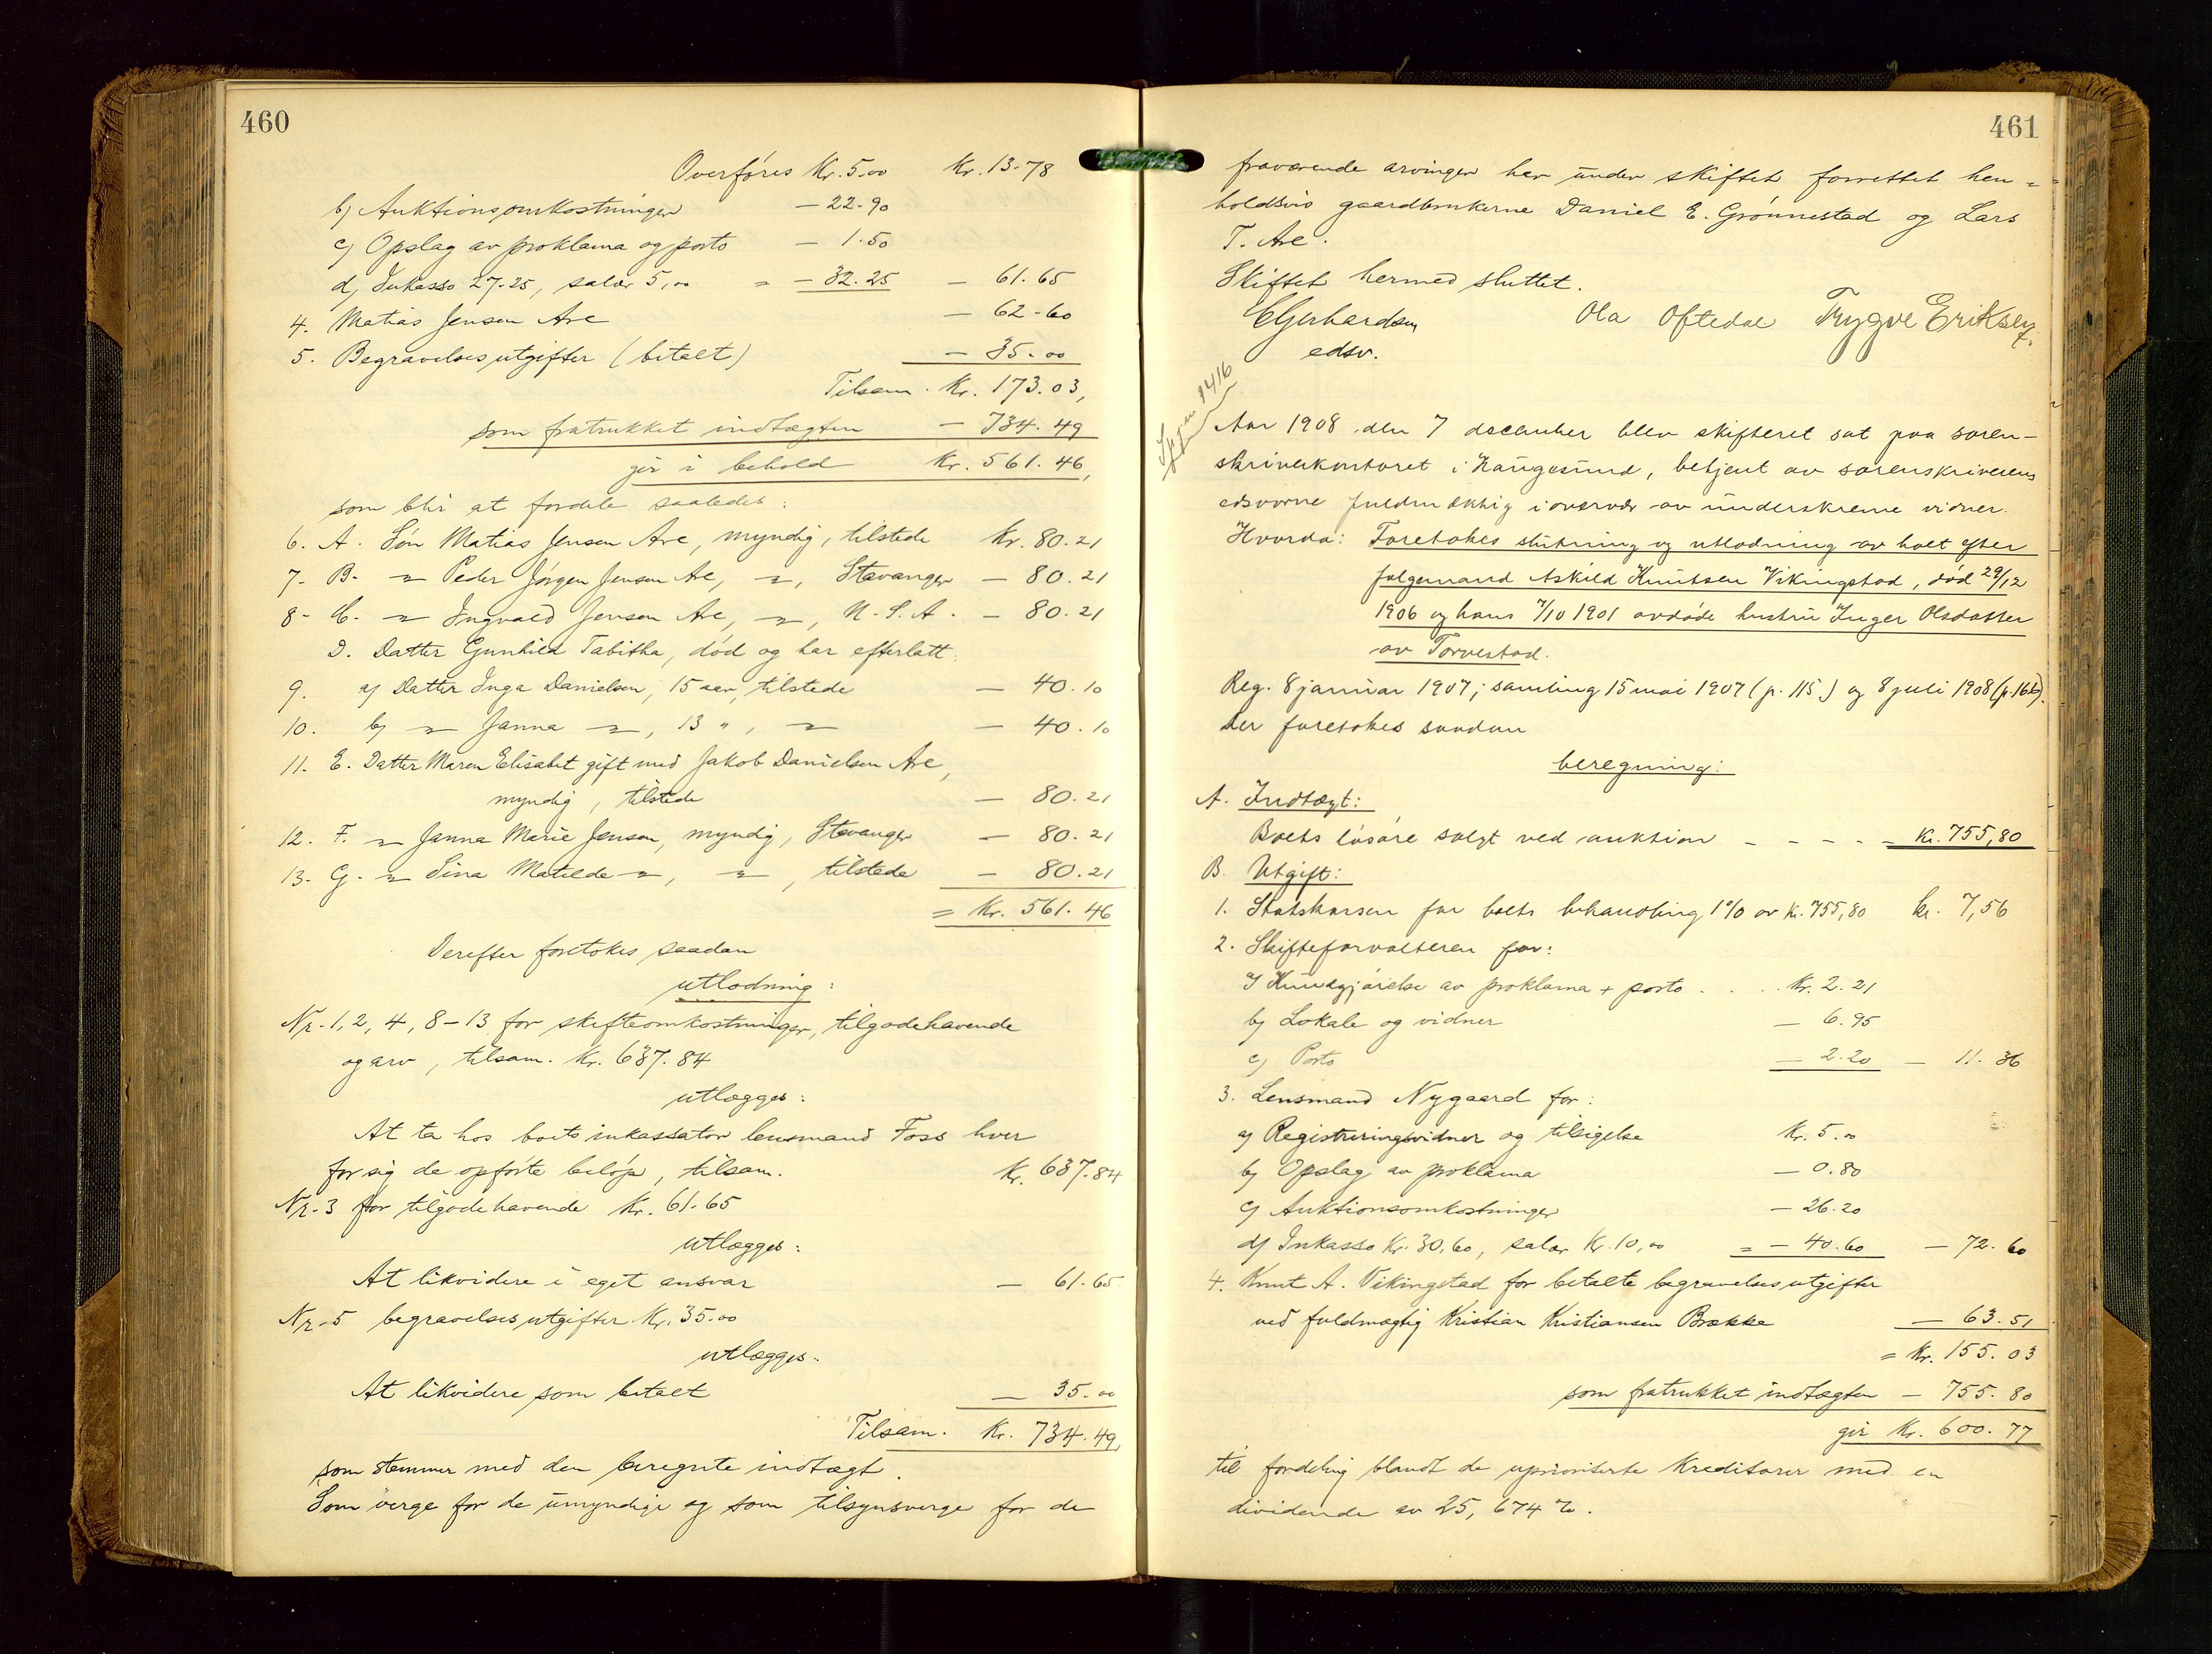 460
Overføres Kr. 5.00 Kr. 13.78
b) Auktionsomkostninger — 22.90
c) Opslag av proklama og porto — 1.50
d) Inkasso 27.25, salær 5,00 = — 32.25 — 61.65
4. Matias Jensen Are — 62.60
5. Begravelsesutgifter (betalt) — 35.00
Tilsam. Kr. 173.03,
som fratrukket indtægten — 734.49
gir i behold Kr. 561.46,
som blir at fordele saaledes:
6. A. Søn Matias Jensen Are, myndig, tilstede Kr. 80.21
7. B. — Peder Jørgen Jensen Are, —, Stavanger — 80.21
8. C. — Ingvald Jensen Are, —, U.S.A. — 80.21
D. Datter Gunhild Tabitha, død og har efterlatt:
9. a) Datter Inga Danielsen, 15 aar, tilstede — 40.10
10. b) — Janna —, 13 ", — — 40.10
11. E. Datter Maren Elisabet gift med Jakob Danielsen Are,
myndig, tilstede — 80.21
12. F. — Janna Marie Jensen, myndig, Stavanger — 80.21
13. G. — Sina Matilde —, —, tilstede — 80.21
= Kr. 561.46
Derefter foretokes saadan
utlodning:
Nr. 1, 2, 4, 8–13 for skifteomkostninger, tilgodehavende
og arv, tilsam. Kr. 637.84
utlægges:
At ta hos boets inkassator lensmand Foss hver
for sig de opførte beløp, tilsam. Kr. 637.84
Nr. 3 for tilgodehavende Kr. 61.65
utlægges:
At likvidere i eget ansvar — 61.65
Nr. 5 begravelsesutgifter Kr. 35.00
utlægges:
At likvidere som betalt — 35.00
Tilsam. Kr. 734.49,
som stemmer med den beregnte indtægt.
Som verge for de umyndige og som tilsynsverge for de
461
fraværende arvinger har under skiftet forrettet hen=
holdsvis gaardbrukerne Daniel E. Grønnestad og Lars
T. Are.
Skiftet hermed sluttet.
EGerhardsen Ola Oftedal Trygve Eriksen
edsv.
1416
Aar 1908 den 7 december blev skifteret sat paa soren-
skriverkontoret i Haugesund, betjent av sorenskriverens
edsvorne fuldmæktig i overvær av underskrevne vidner.
Hvorda: Foretokes slutning og utlodning av boet efter
følgemand Askild Knutsen Vikingstad, død 29/12
1906 og hans 7/10 1901 avdøde hustru Inger Olsdatter
av Torvestad.
Reg. 8 januar 1907; samling 15 mai 1907 (p. 115) og 8 juli 1908 (p. 166).
Der foretokes saadan
beregning:
A. Indtægt:
Boets løsøre solgt ved auktion - - - - - Kr. 755,80
B. Utgift:
1. Statskassen for boets behandling 1% av Kr. 755,80 Kr. 7,56
2. Skifteforvalteren for:
a) Kundgjørelse av proklama + porto . . . Kr. 2.21
b) Lokale og vidner — 6.95
c) Porto — 2.20 — 11.36
3. Lensmand Nygaard for:
a) Registreringsvidner og tilsigelse Kr. 5.00
b) Opslag av proklama — 0.80
c) Auktionsomkostninger — 26.20
d) Inkasso Kr. 30,60, salær Kr. 10,00 = — 40.60 — 72.60
4. Knut A. Vikingstad for betalte begravelsesutgifter
ved fuldmægtig Kristian Kristiansen Brække — 63.51
= Kr. 155.03
som fratrukket indtægten — 755.80
gir Kr. 600.77
til fordeling blandt de upriorterte kreditorer med en
dividende av 25,674 %.